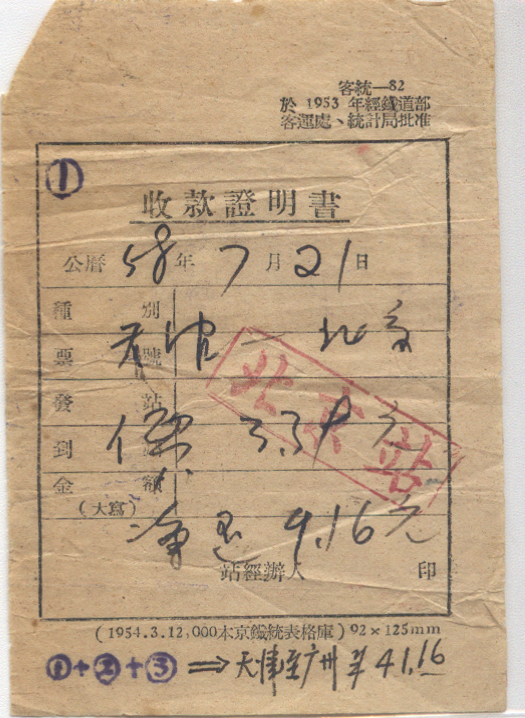 客統—82
於 1953 年經鐵道部
客運處、統計局批准
①
收款證明書
公曆 58 年 7 月 21 日
種別
票號
北京
發站
北京站
到
元
金額
(大寫)
9.16元
站經辦人 印
(1954.3.12,000本京鐵統表格庫) 92×125mm
①+②+③ ⇒ 天津至广州 羊 41.16